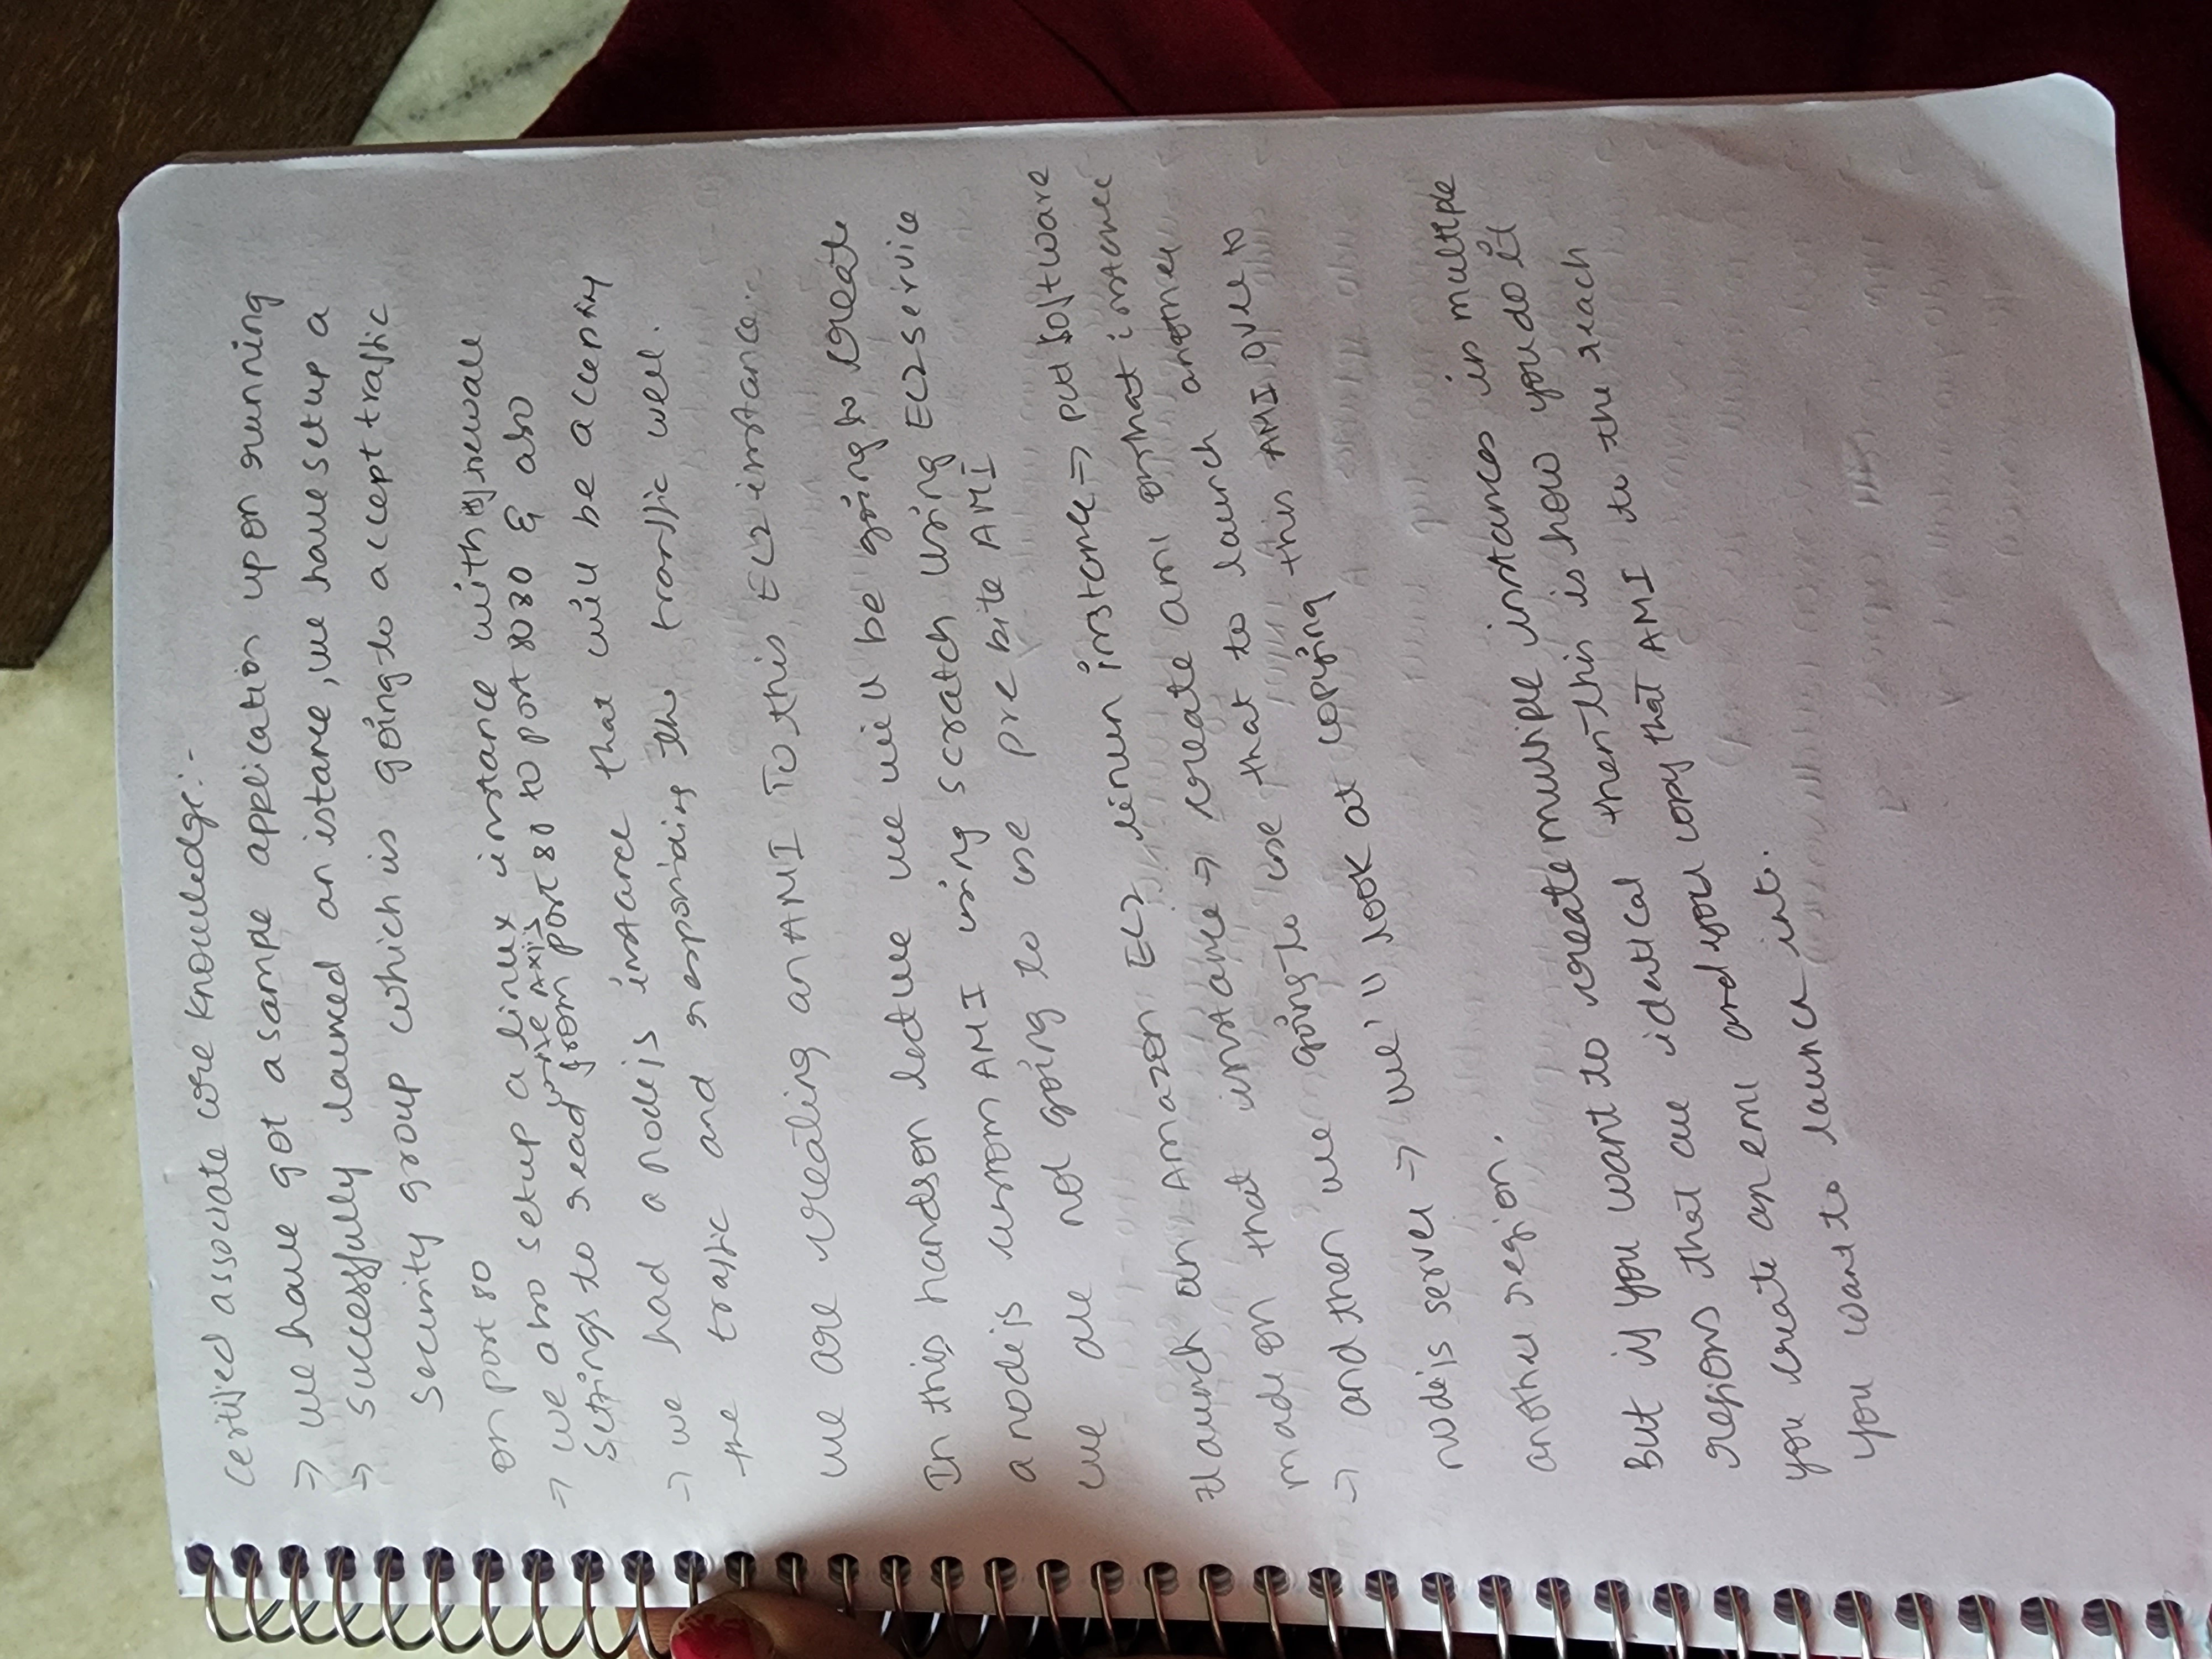 certified associate core knowledge:-
→ we have got a sample application upon running
→ successfully launced an istance, we have setup a
security group which is going to accept traffic
on port 80
→ we also setup a linux instance with firewall
write Axis
settings to read from port 80 to port 8080 & also
→ we had a nodejs instance that will be accepting
the traffic and responding the traffic well.
we are creating an AMI To this EC2 instance.
In this handson lecture we will be going to create
a nodejs custom AMI using scratch using EC2 service
we are not going to use pre bite AMI
→ launch an Amazon EC2 linux instance → put software
made on that instance → create ami on that instance
→ and then we going to use that to launch another
nodejs server → we'll look at copying this AMI over to
another region.
But if you want to create multiple instances in multiple
regions that are identical then this is how you do it
you create an emi and you copy that AMI to the reach
you want to launch into.